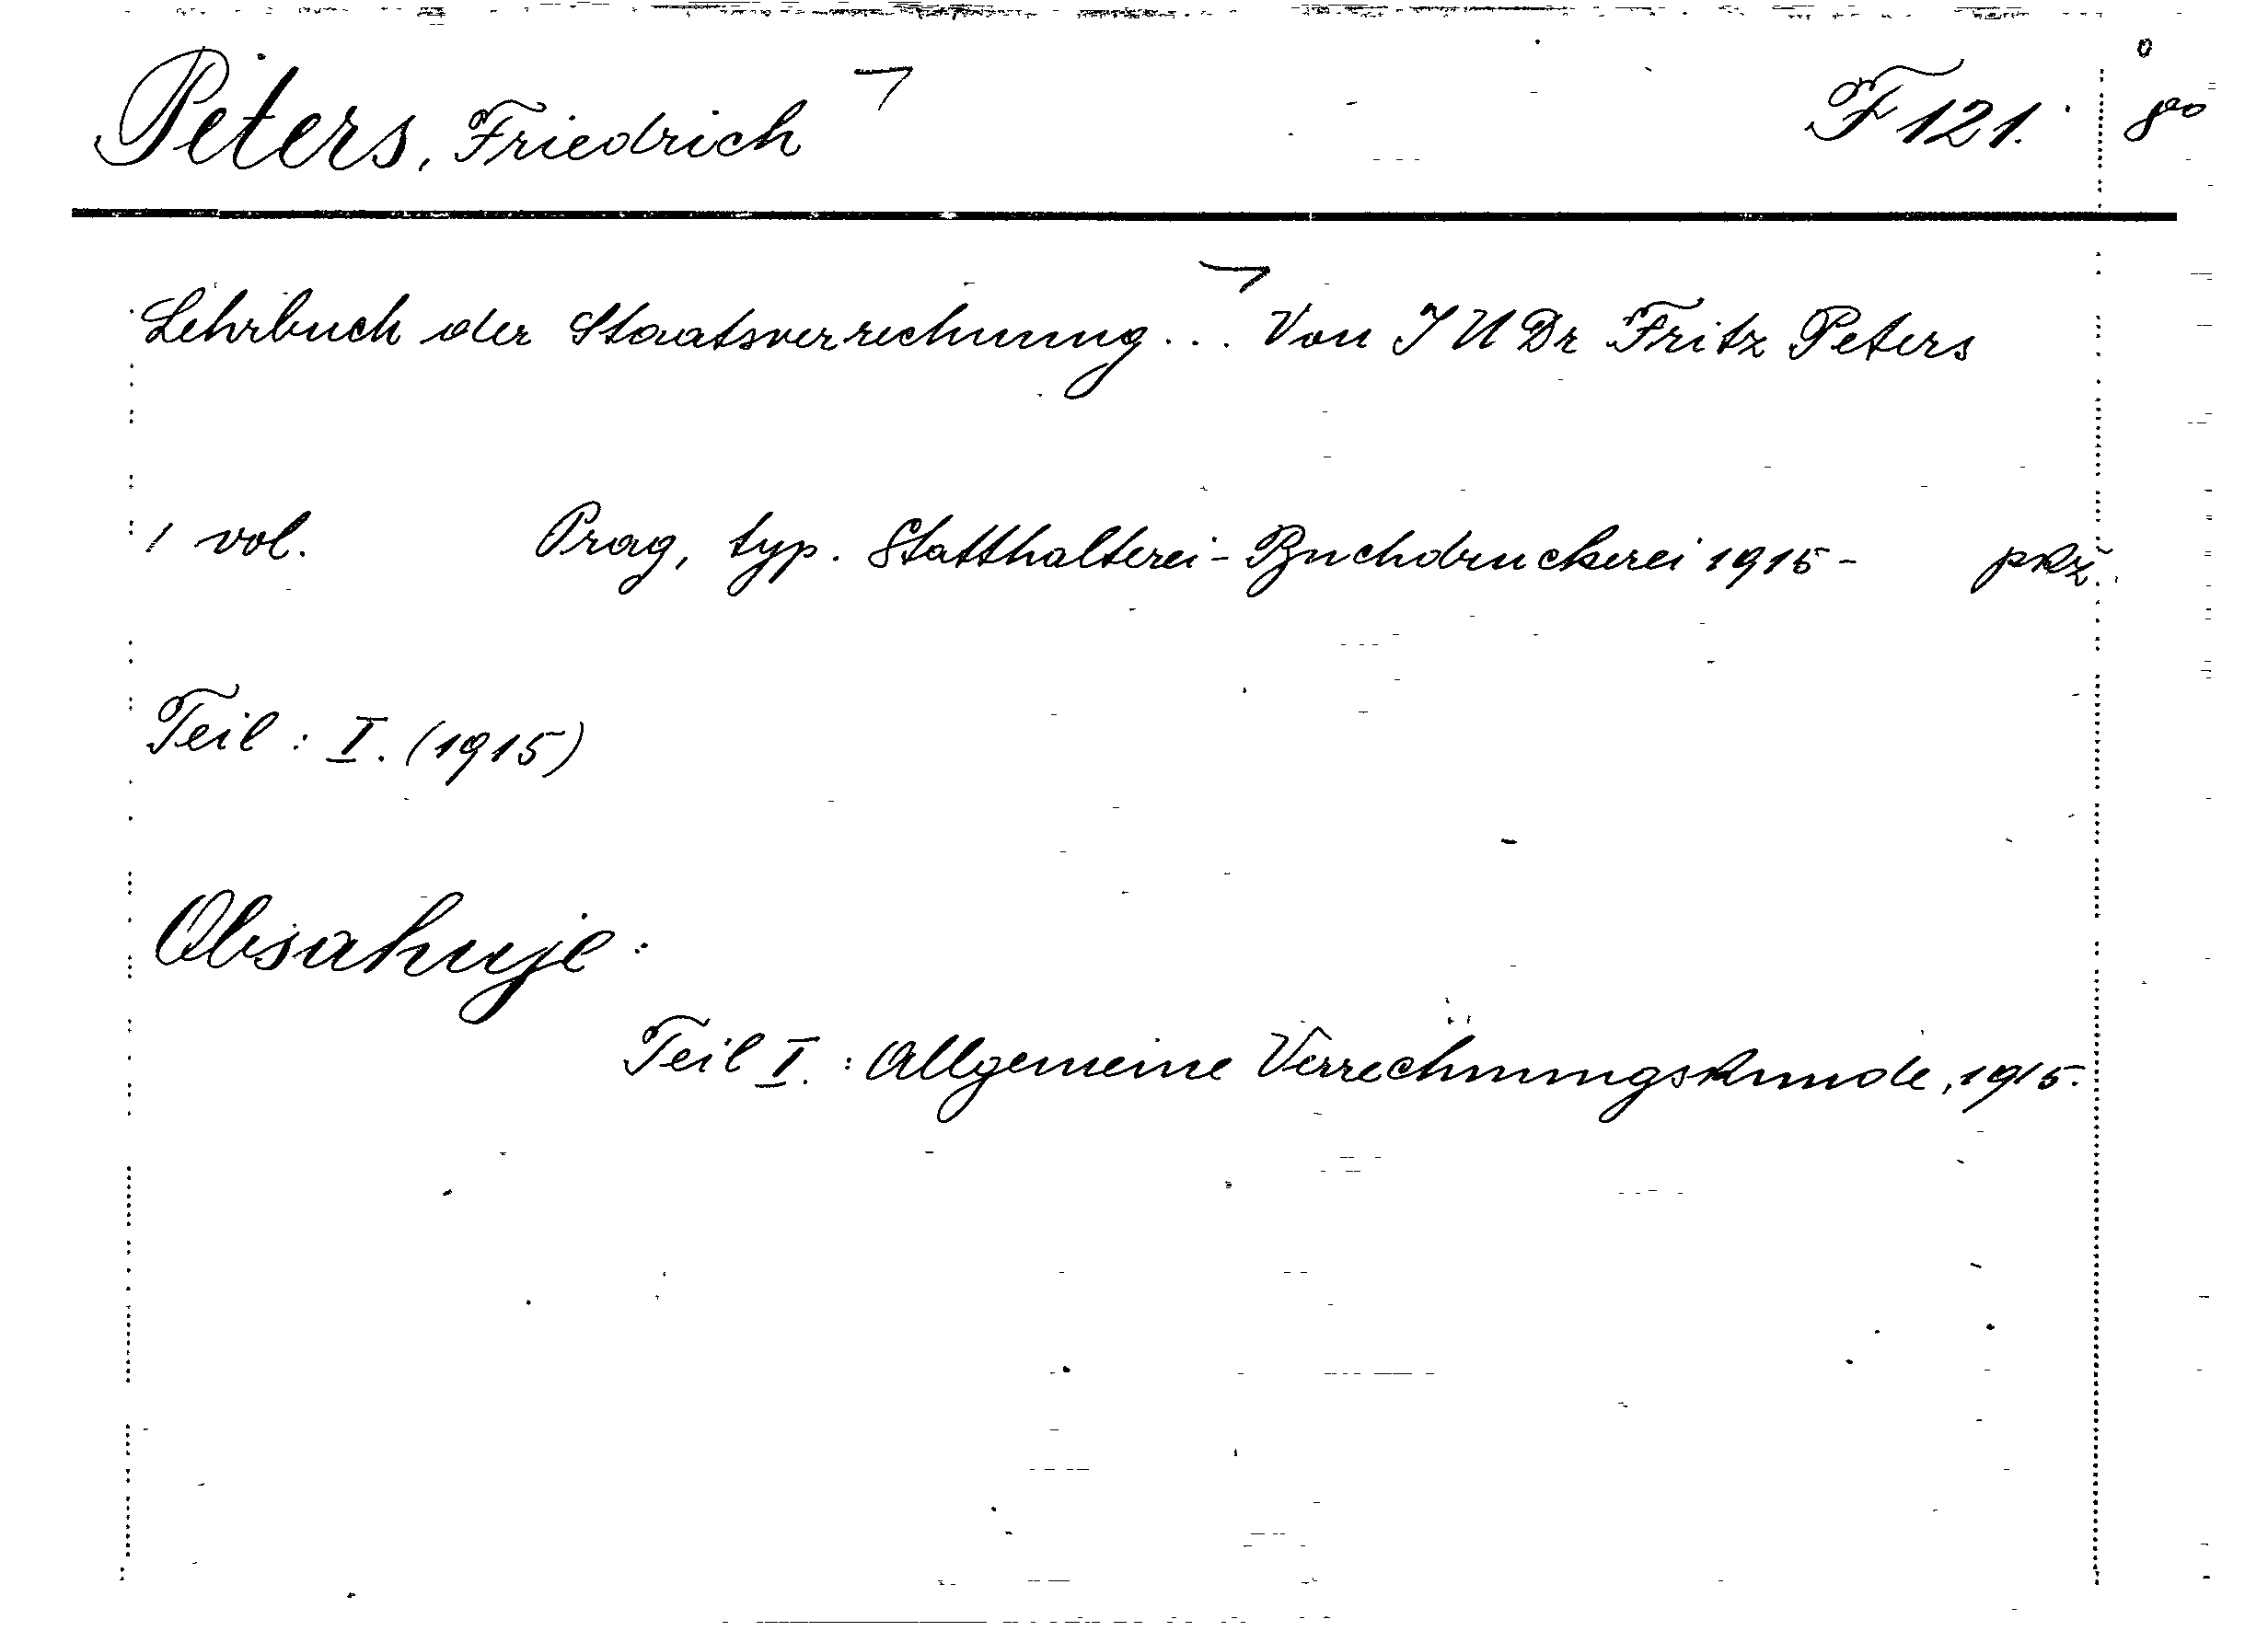 Peters, Friedrich F 121. 8°
Lehrbuch der Staatsverrechnung... Von JUDr Fritz Peters
1 vol. Prag, typ. Statthalterei-Buchdruckerei 1915- pkž.
Teil: I. (1915)
Obsahuje:
Teil I.: Allgemeine Verrechnungskunde, 1915.